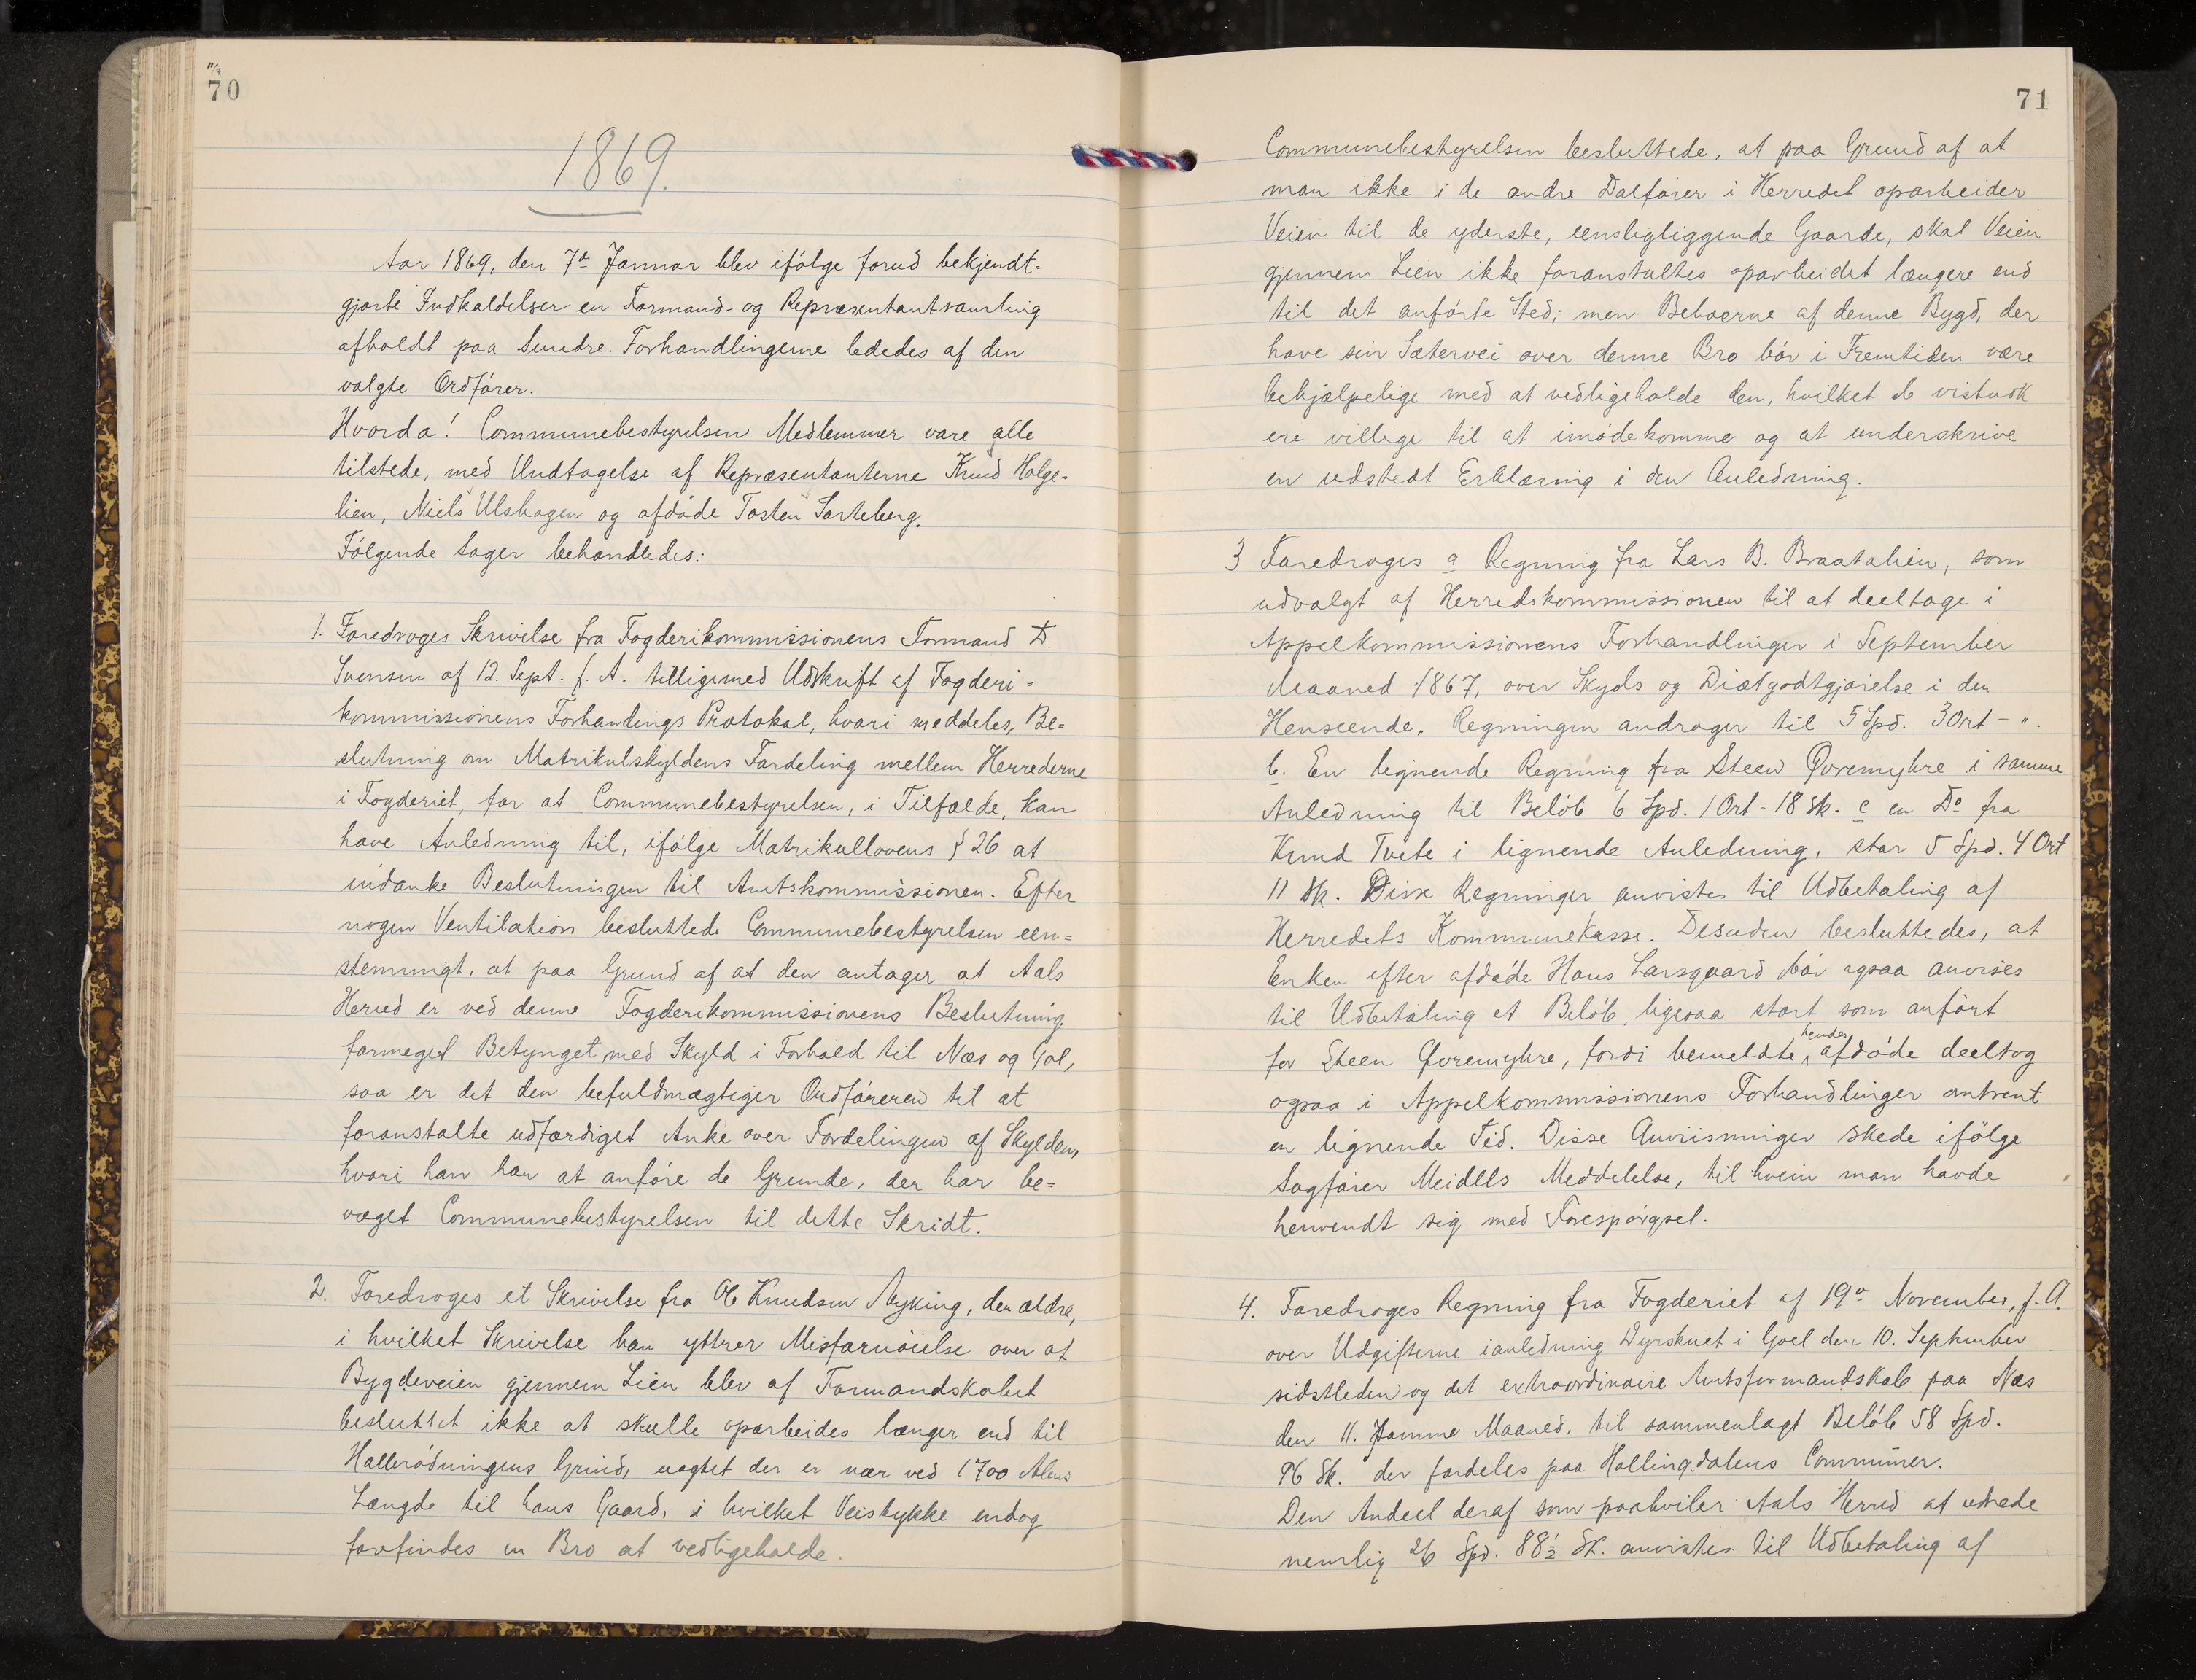 70
1869.
Aar 1869, den 7de Januar blev ifølge forud bekjendt-
gjorte Indkaldelser en Formand- og Repræsentantsamling
afholdt paa Sundre. Forhandlingerne lededes af den
valgte Ordfører.
Hvorda! Communebestyrelsen Medlemmer vare alle
tilstede, med Undtagelse af Repræsentanterne Knud Holge-
lien, Niels Ulshagen og afdøde Tosten Sarteberg.
Følgende Sager behandledes:
1. Foredroges Skrivelse fra Fogderikommissionens Formand D.
Svensen af 12. Sept. f. A. tilligemed Udskrift af Fogderi-
kommissionens Forhandlings Protokol, hvori meddeles, Be=
slutning om Matrikulskyldens Fordeling mellem Herrederne
i Fogderiet, for at Communebestyrelsen, i Tilfælde, kan
have Anledning til, ifølge Matrikullovens § 26 at
indanke Beslutningen til Amtskommissionen. Efter
nogen Ventilation besluttede Communebestyrelsen een=
stemmigt, at paa Grund af at den antager at Aals
Herred er ved denne Fogderikommissionens Beslutning
formeget Betynget med Skyld i Forhold til Næs og Gol,
saa er det den befuldmægtiger Ordføreren til at
foranstalte udfærdiget Anke over Fordelingen af Skylden,
hvori han har at anføre de Grunde, der har be=
væget Communebestyrelsen til dette Skridt.
2. Foredroges et Skrivelse fra Ole Knudsen Nyking, den ældre,
i hvilket Skrivelse han yttrer Misfornøielse over at
Bygdeveien gjennem Lien blev af Formandskabet
besluttet ikke at skulle oparbeides længer end til
Hallerødningens Grind, uagtet der er nær ved 1700 Alens
Længde til hans Gaard, i hvilket Veistykke endog
forfindes en Bro at vedligeholde.
71
Communebestyrelsen besluttede, at paa Grund af at
man ikke i de andre Dalfører i Herredet oparbeider
Veien til de yderste, eensligliggende Gaarde, skal Veien
gjennem Lien ikke foranstaltes oparbeidet længere end
til det anførte Sted; men Beboerne af denne Bygd, der
have sin Sætervei over denne Bro bør i Fremtiden være
behjælpelige med at vedligeholde den, hvilket de vistnok
ere villige til at imødekomme og at underskrive
en udstedt Erklæring i den Anledning.
3 Foredroges a Regning fra Lars B. Braatalien, som
udvalgt af Herredskommissionen til at deeltage i
Appelkommissionens Forhandlinger i September
Maaned 1867, over Skyds og Diætgodtgjørelse i den
Henseende. Regningen andrager til 5 Spd. 3 Ort - ".
b. En lignende Regning fra Steen Øvremyhre i samme
Anledning til Beløb 6 Spd. 1 Ort - 18 Sk. c en Do fra
Knud Tvete i lignende Anledning, stor 5 Spd. 4 Ort
11 Sk. Disse Regninger anvistes til Udbetaling af
Herredets Kommunekasse. Desuden besluttedes, at
Enken efter afdøde Hans Larsgaard bør ogsaa anvises
til Udbetaling et Beløb, ligesaa stort som anført
for Steen Øvremyhre, fordi bemeldte hendes afdøde deeltog
ogsaa i Appelkommissionens Forhandlinger omtrent
en lignende Tid. Disse Anviisninger skede ifølge
Sagfører Meidells Meddelelse, til hvem man havde
henvendt sig med Forespørgsel.
4. Foredroges Regning fra Fogderiet af 19de November, f. A.
over Udgifterne ianledning Dyrskuet i Goel den 10. September
sidstleden og det extraordinaire Amtsformandskab paa Næs
den 11. samme Maaned, til sammenlagt Beløb 58 Spd.
86 Sk. der fordeles paa Hallingdalens Communer.
Den Andeel deraf som paahviler Aals Herred at udrede
nemlig 26 Spd. 88½ Sk. anvistes til Udbetaling af